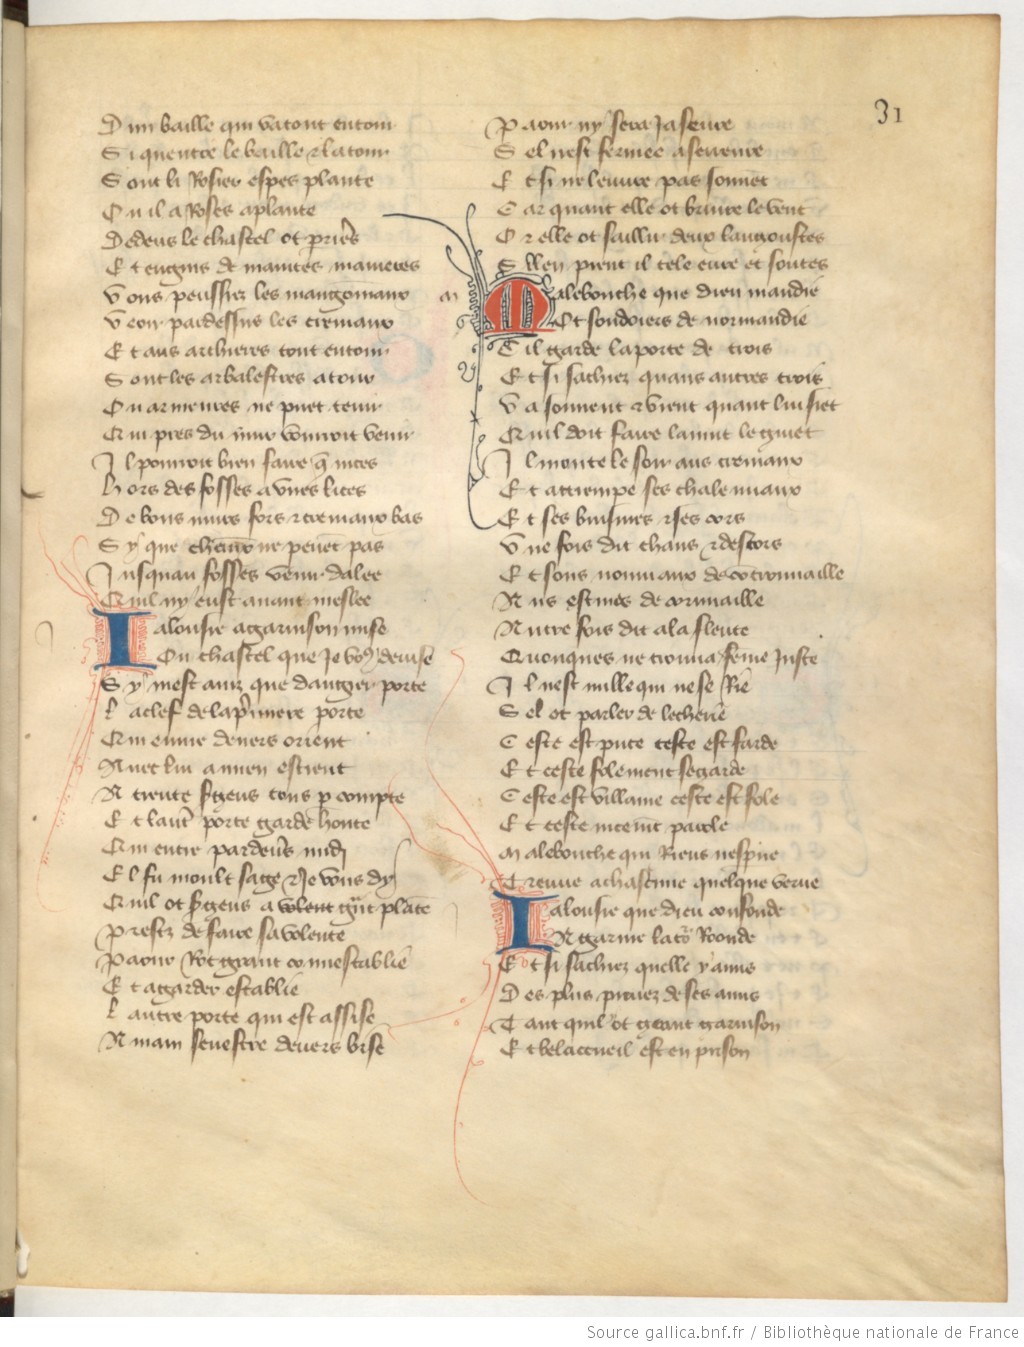 31
D un baille qui vatout entour
S i quentre le baille et la tour
S ont li Rosier espes plante
O u il a Roses a plante
Dedens le chastel ot prieres
E t engins de maintes manieres
V ous peussiez les mangonniaux
V eoir par dessus les creniaux
E t aus archieres tout entour
S ont les arbalestres a tour
Qu armeures ne puet tenir
Qui pres du mur vouroit venir
I l pouroit bien faire q nices
h ors des fosses a unes lices
De bons murs fors et creniaux bas
S y que chevaux ne pevent pas
Jusquau fosses venir dalee
Quil ny eust avant meslee
I alousie a garnison mise
Ou chastel que Je vous devise
S y mest aviz que dangier porte
L a clef de la premiere porte
Qui euvre devers orient
Avec lui a mien escient
A trente sergens tous p compte
E t lautre porte garde honte
Qui entre par devers midi
E l fu moult sage et Je vous dy
Quil ot sergens a volent grant plante
P restz de faire sa volente
Paour Rot grant connestablie
E t a garder establie
L autre porte qui est assise
A main senestre devers bise
Paour ny sera Ja seure
S el nest fermee a serreure
E t si ne leuvre pas sonvent
C ar quant elle ot bruire le vent
O r elle ot saillir deux langoustes
S llen prent il tele eure et soutes
m Malebouche que dieu maudie
Ot soudoiers de normandie
C il garde la porte de trois
E t si sachiez quaus autres trois
V a souvent et vient quant lui siet
Quil doit faire la nuit le guiet
I l monte le soir aus creniaux
E t attrempe ses chalemiaux
E t ses buisines et ses cors
V ne fois dit chans et descors
E t sons nouviaux de controuvaille
A us estives de cornuaille
Autre fois dit a la fleute
Quonques ne trouva feme Juste
I l nest nulle qui ne se Rie
S el ot parler de lecherie
C este est pute ceste est farde
E t ceste folement se garde
C este est villaine ceste est fole
E t ceste nicement parole
Malebouche qui Riens nespire
Treuve a chascune quelque verve
I alousie que dieu confonde
A garnie la tour Roonde
E t si sachiez quelle y a mis
D es plus privez de ses amis
T ant quil ot grant garnison
E t belaccueil est en prison
Source gallica.bnf.fr / Bibliothèque nationale de France